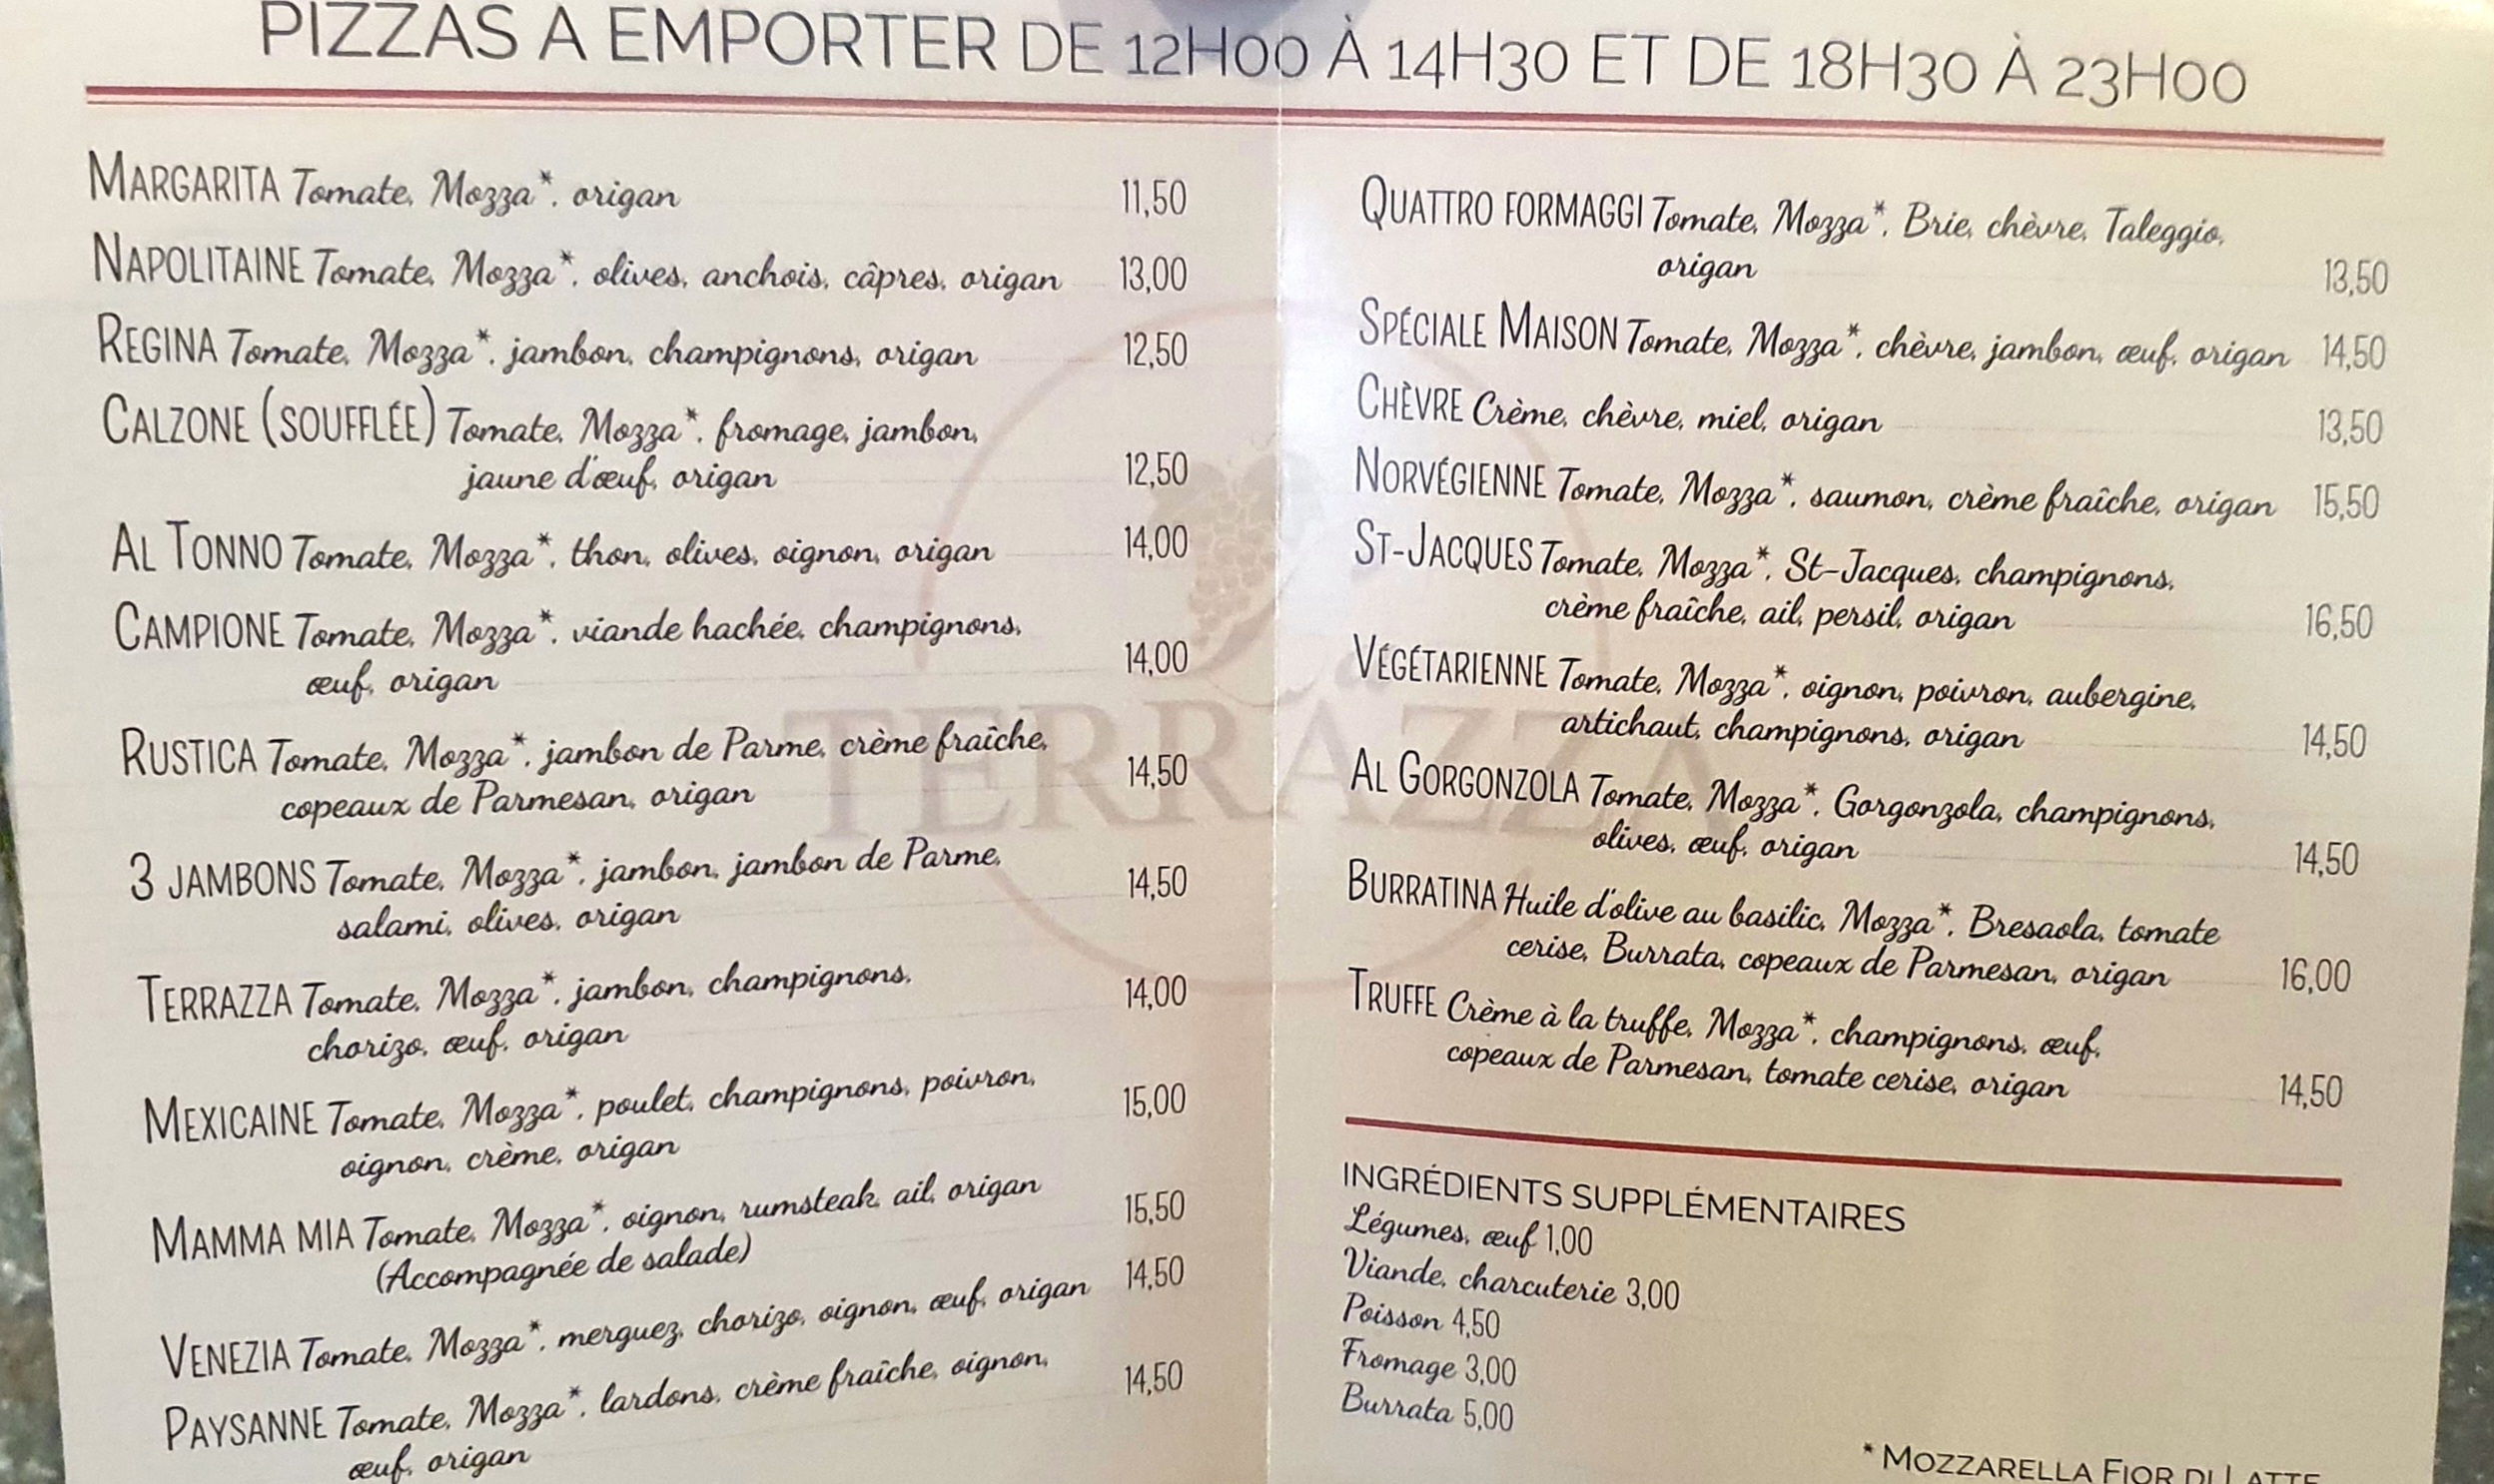 PIZZAS A EMPORTER DE 12H00 À 14H30 ET DE 18H30 À 23H00
MARGARITA Tomate, Mozza*, origan 11,50
NAPOLITAINE Tomate, Mozza*, olives, anchois, câpres, origan 13,00
REGINA Tomate, Mozza*, jambon, champignons, origan 12,50
CALZONE (SOUFFLÉE) Tomate, Mozza*, fromage, jambon,
jaune d'œuf, origan 12,50
AL TONNO Tomate, Mozza*, thon, olives, oignon, origan 14,00
CAMPIONE Tomate, Mozza*, viande hachée, champignons,
œuf, origan 14,00
RUSTICA Tomate, Mozza*, jambon de Parme, crème fraîche,
copeaux de Parmesan, origan 14,50
3 JAMBONS Tomate, Mozza*, jambon, jambon de Parme,
salami, olives, origan 14,50
TERRAZZA Tomate, Mozza*, jambon, champignons,
chorizo, œuf, origan 14,00
MEXICAINE Tomate, Mozza*, poulet, champignons, poivron,
oignon, crème, origan 15,00
MAMMA MIA Tomate, Mozza*, oignon, rumsteak, ail, origan 15,50
(Accompagnée de salade)
VENEZIA Tomate, Mozza*, merguez, chorizo, oignon, œuf, origan 14,50
PAYSANNE Tomate, Mozza*, lardons, crème fraîche, oignon,
œuf, origan 14,50
QUATTRO FORMAGGI Tomate, Mozza*, Brie, chèvre, Taleggio,
origan 13,50
SPÉCIALE MAISON Tomate, Mozza*, chèvre, jambon, œuf, origan 14,50
CHÈVRE Crème, chèvre, miel, origan 13,50
NORVÉGIENNE Tomate, Mozza*, saumon, crème fraîche, origan 15,50
ST-JACQUES Tomate, Mozza*, St-Jacques, champignons,
crème fraîche, ail, persil, origan 16,50
VÉGÉTARIENNE Tomate, Mozza*, oignon, poivron, aubergine,
artichaut, champignons, origan 14,50
AL GORGONZOLA Tomate, Mozza*, Gorgonzola, champignons,
olives, œuf, origan 14,50
BURRATINA Huile d'olive au basilic, Mozza*, Bresaola, tomate
cerise, Burrata, copeaux de Parmesan, origan 16,00
TRUFFE Crème à la truffe, Mozza*, champignons, œuf,
copeaux de Parmesan, tomate cerise, origan 14,50
INGRÉDIENTS SUPPLÉMENTAIRES
Légumes, œuf 1,00
Viande, charcuterie 3,00
Poisson 4,50
Fromage 3,00
Burrata 5,00
* MOZZARELLA FIOR DI LATTE
TERRAZZA